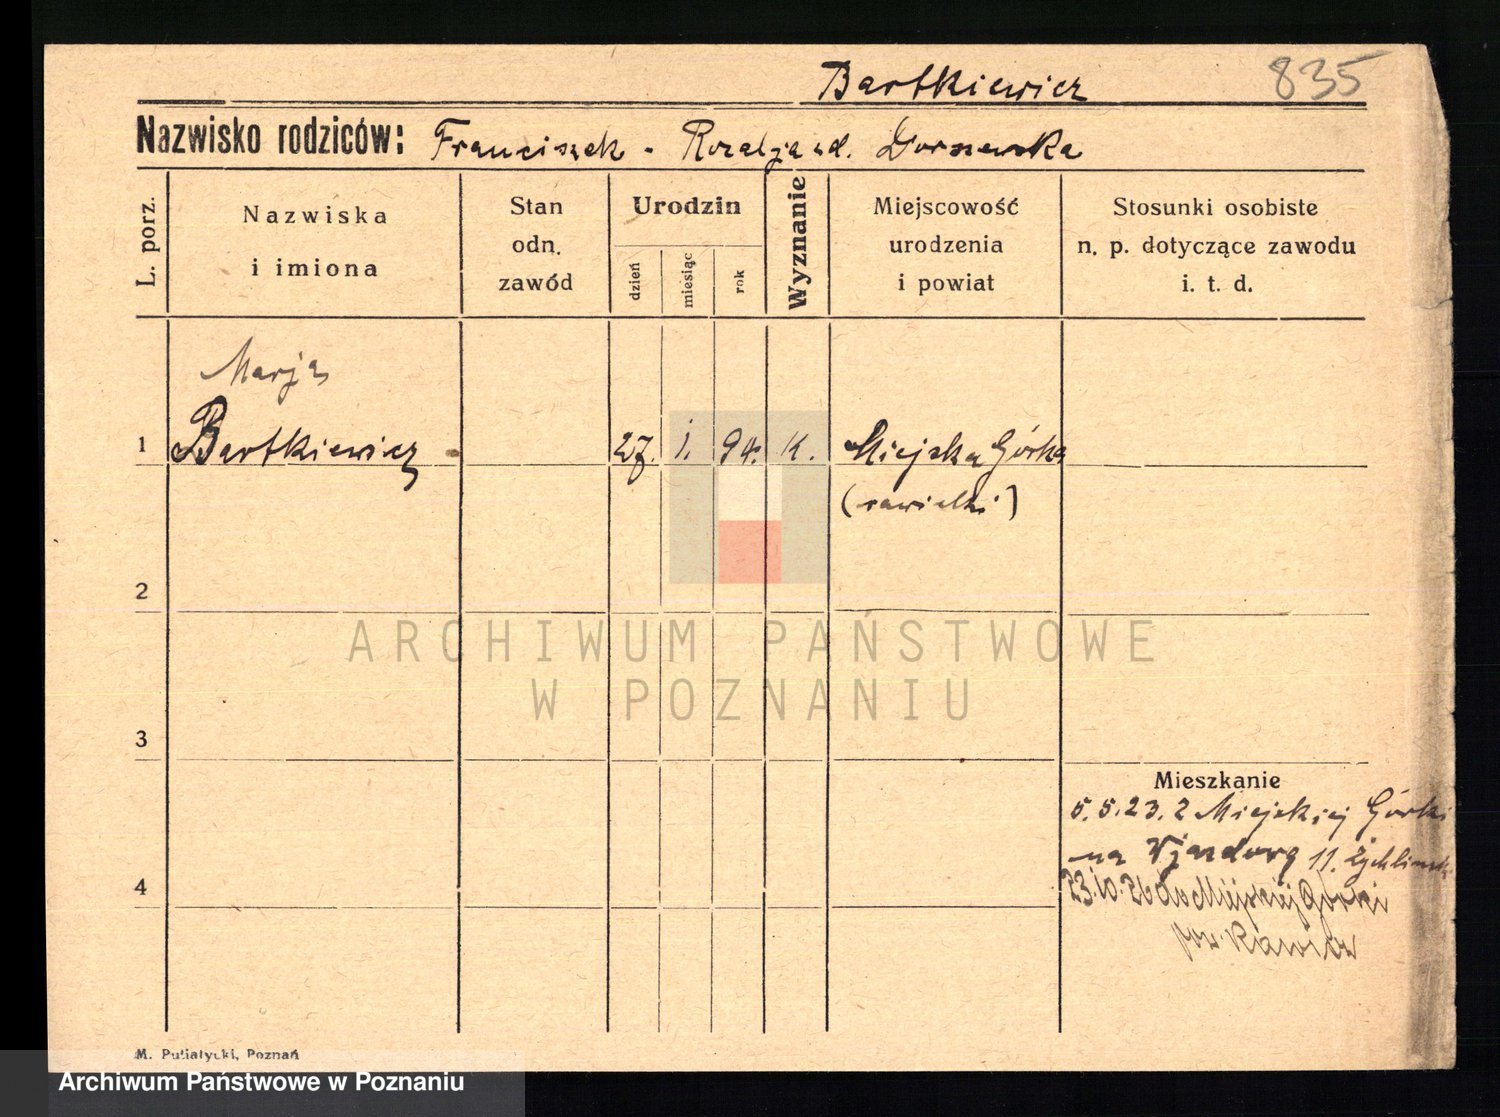 835
Bartkiewicz
Nazwisko rodziców: Franciszek - Rozalja ud.
L. porz.
Nazwiska i imiona
Stan odn. zawód
Urodzin
dzień
miesiąc
rok
Wyznanie
Miejscowość urodzenia i powiat
Stosunki osobiste n. p. dotyczące zawodu i. t. d.
Marja
1 Bartkiewicz 27. 1. 94. K. Miejska Górka
(rawicki)
2
ARCHIWUM PAŃSTWOWE
W POZNANIU
3
Mieszkanie
5.5.23. z Miejskiej Górki
na 11.
4
23.10.26 do Miejskiej Górki
pow. Rawicz
M. Putiatycki, Poznań
Archiwum Państwowe w Poznaniu